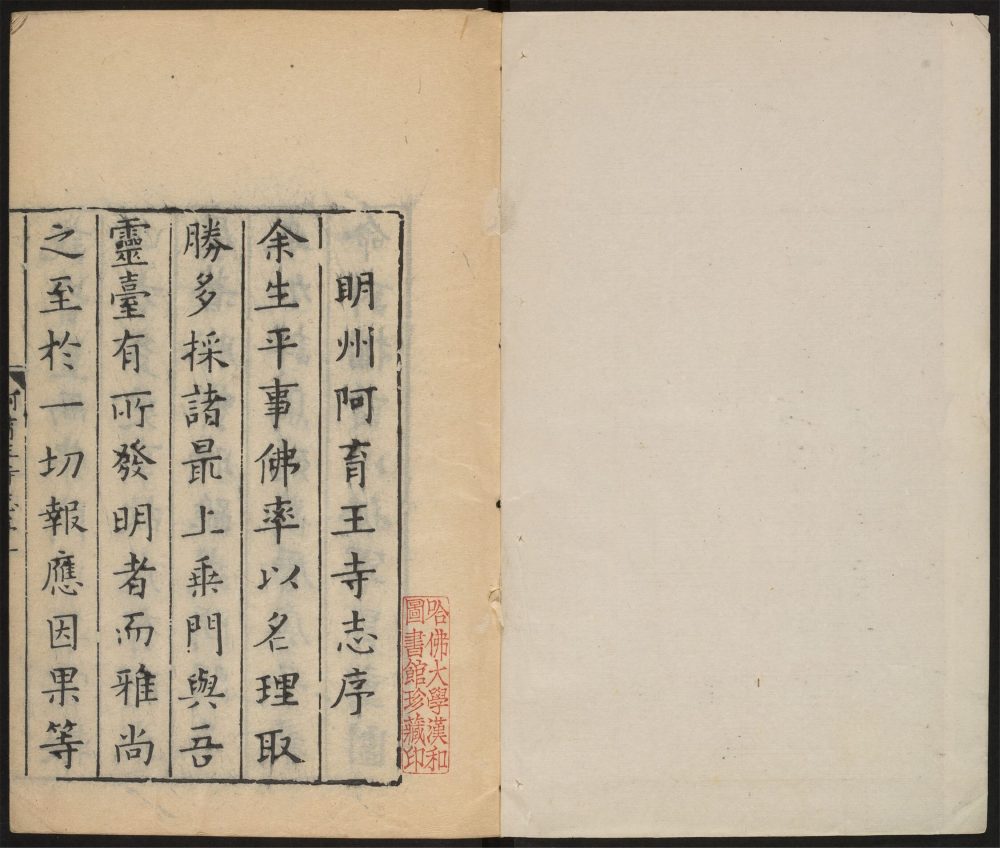 明州阿育王寺志序
余生平事佛率以名理取
勝多採諸最上乗門與吾
靈臺有所發明者而雅尚
之至於一切報應因果等
哈佛大學漢和
圖書館珍藏印